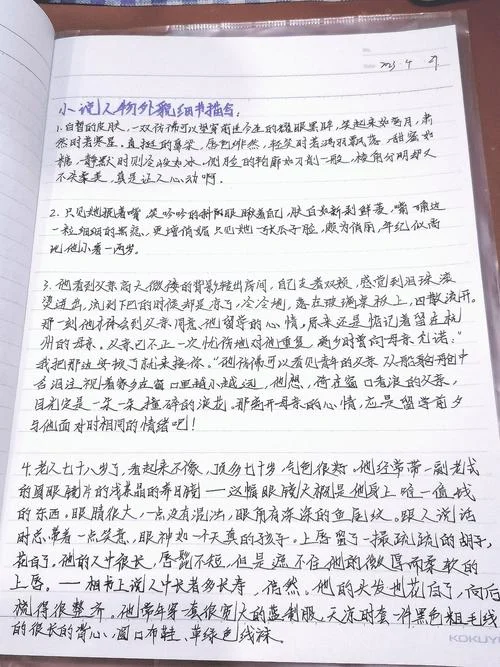 No.
Date
2023. 4
小说人物外貌细节描写:
1.白皙的皮肤,一双仿佛可以望穿前世今生的耀眼黑眸,笑起来如弯月,肃
然时若寒星。直挺的鼻梁,唇色绯然,轻笑时若鸿羽飘落,甜蜜如
糖,静默时则冷峻如冰。侧脸的轮廓如刀削一般,棱角分明却又
不失柔美,真是让人心动啊。
2. 只见她抿着嘴,笑吟吟的斜着眼瞅着自己,肤白如新剥鲜菱,嘴角边
一粒细细的黑痣,更增俏媚只见她一张瓜子脸,颇为俏丽,年纪似乎
比他小着一两岁。
3. 他看到父亲高大微偻的背影转出房间,自己支着双颊,感觉到泪珠滚
烫迸出,流到下巴的时候却是凉了,冷冷地,落在玻璃桌板上,四散流开。
那一刻他才体会到父亲同意他留学的心情,原来还是惦记着留在杭
州的母亲。父亲已不止一次忧伤地对他重复,离乡时曾向母亲允诺:“
我把那边安顿了就来接你。”他仿佛可以看见青年的父亲从船舱的窗中
含泪注视着家乡在窗口里越小越远,他想,倚在窗口看浪的父亲,
目光定是一朵一朵撞碎的浪花。那离开母亲的心情,应是留学前夕
与他面对时相同的情绪吧!
4. 老人七十八岁了,看起来不像,顶多七十岁。气色很好。他经常带一副老式
的圆眼镜片的浅茶晶的养目镜——这幅眼镜大概是他身上唯一值钱
的东西。眼睛很大,一点没有混浊,眼角有深深的鱼尾纹。跟人说话
时总带着一点笑意,眼神如一个天真的孩子。上唇留了一撮疏疏的胡子,
花白了。他的人中很长,唇髭不短,但是遮不住他的微厚而柔软的
上唇。——相书上说人中长者多长寿,信然。他的头发也花白了,向后
梳得很整齐。他常年穿一套很宽大的蓝制服,天凉时套一件黑色粗毛线
的很长的背心。圆口布鞋、草绿色线袜。
KOKUYO